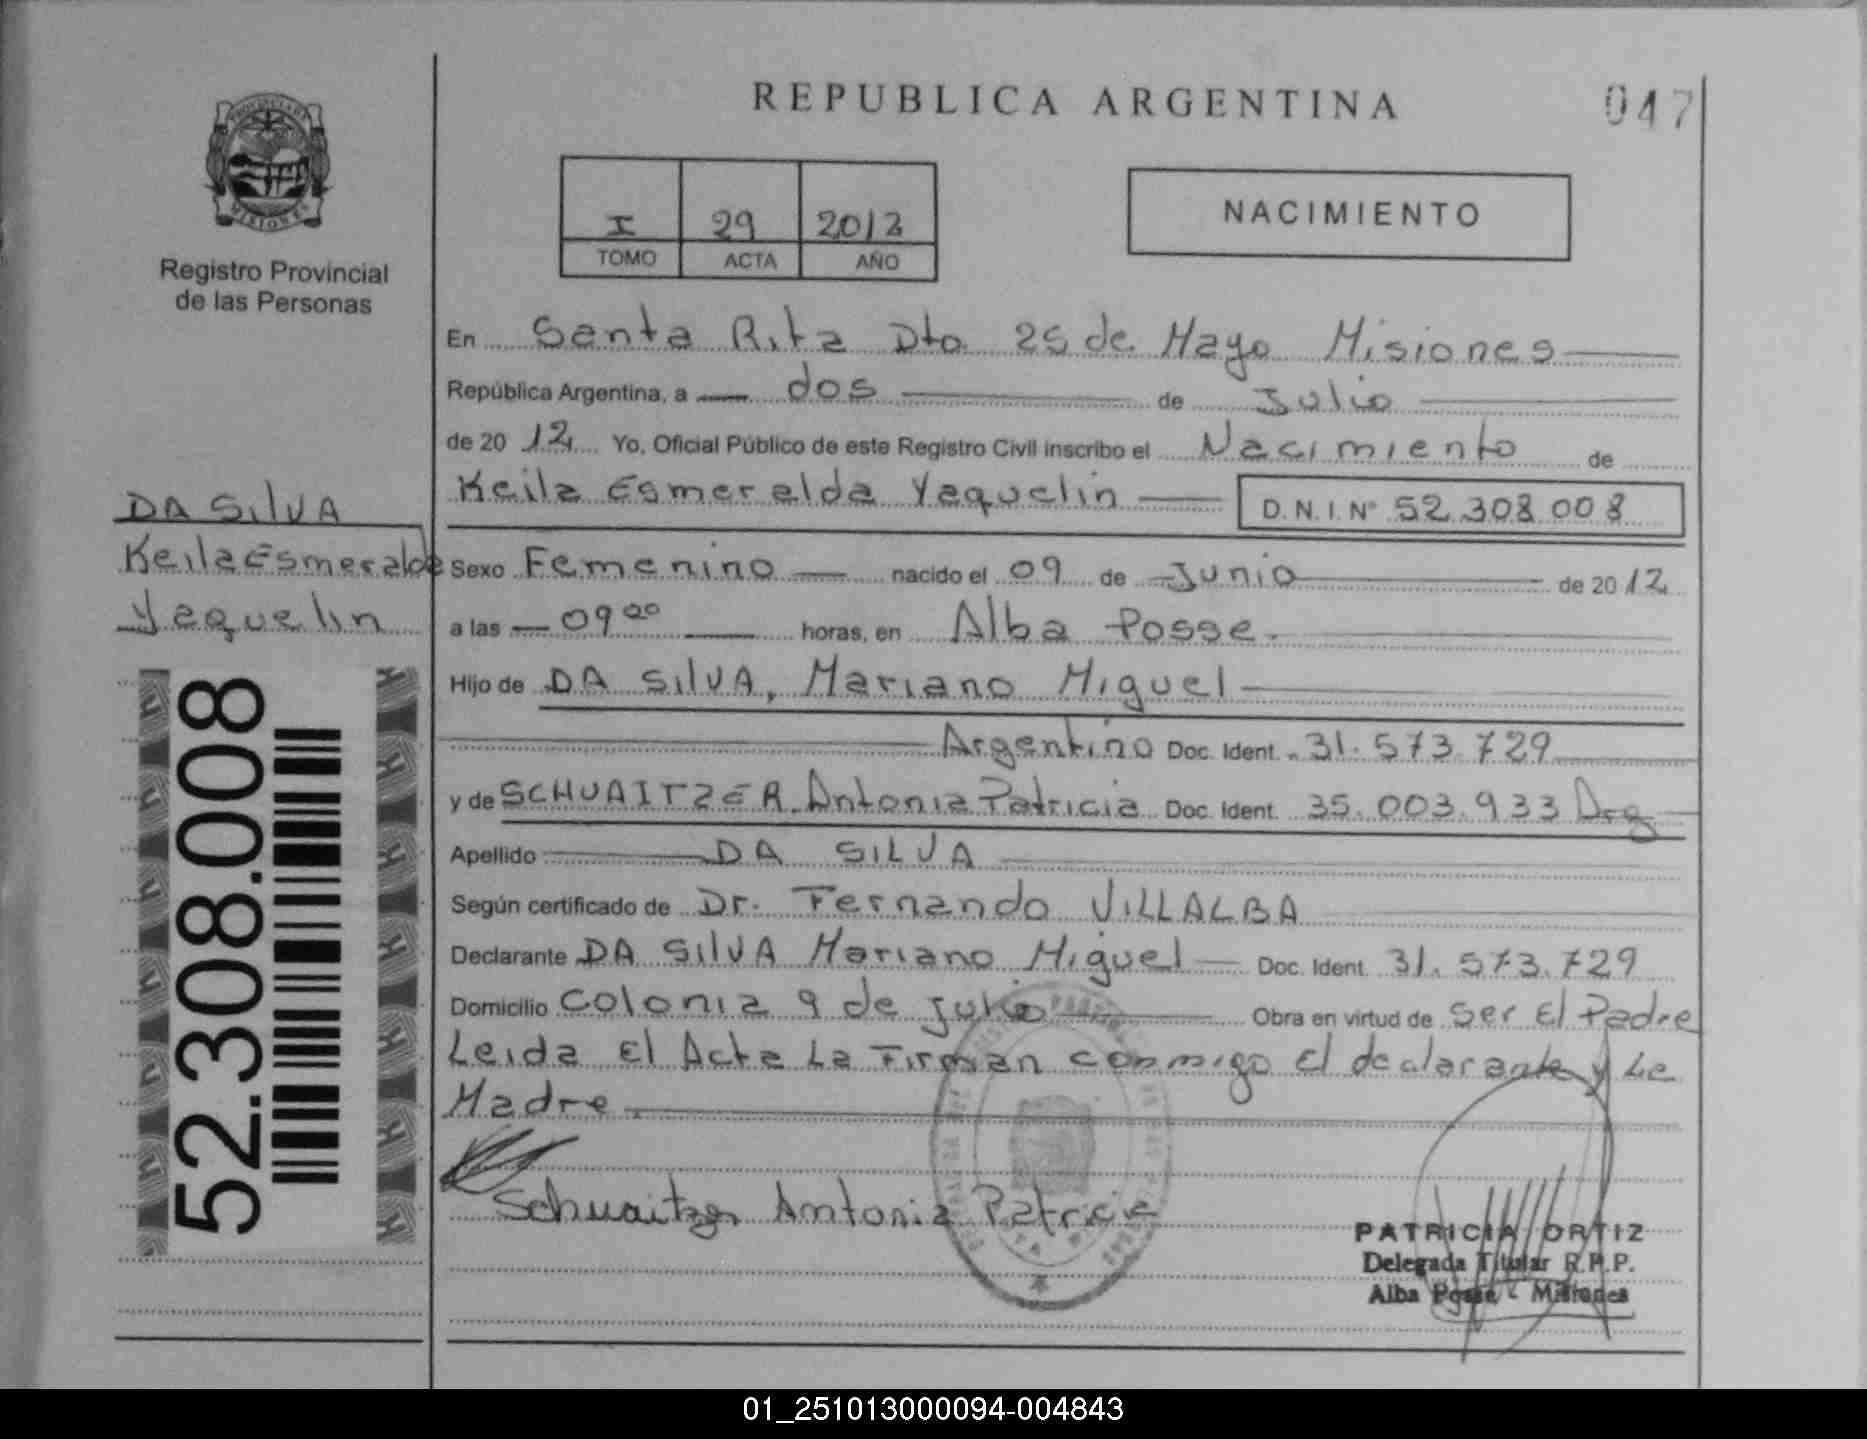 REPUBLICA ARGENTINA
047
PROVINCIA DE
MISIONES
Registro Provincial
de las Personas
I 29 2012
TOMO ACTA AÑO
NACIMIENTO
En Santa Rita Dto 25 de Mayo Misiones
República Argentina, a dos de Julio
de 20 12 Yo, Oficial Público de este Registro Civil inscribo el Nacimiento de
Keila Esmeralda Yaquelin D.N.I.Nº 52.308.008
DA SilVA
Keila Esmeralda
Yaquelin
52.308.008
Sexo Femenino nacido el 09 de Junio de 20 12
a las 09 00 horas, en Alba Posse.
Hijo de DA SilVA, Mariano Miguel
Argentino Doc. Ident. 31.573.729
y de SCHUAITZER Antonia Patricia Doc. Ident. 35.003.933 Arg
Apellido DA SILVA
Según certificado de Dr. Fernando VILLALBA
Declarante DA SilVA Mariano Miguel Doc. Ident. 31.573.729
Domicilio Colonia 9 de Julio Obra en virtud de Ser El Padre
Leida El Acta La Firman conmigo El declarante y La
Madre
Schuaitzer Antonia Patricia
PATRICIA ORTIZ
Delegada Titular R.P.P.
Alba Posse - Misiones
01_251013000094-004843